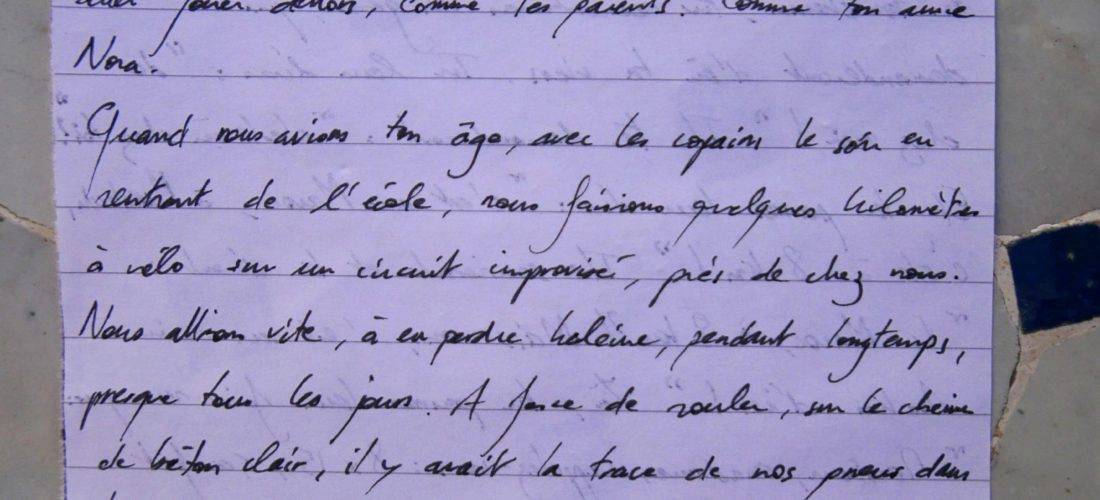 aller jouer dehors, comme les parents. Comme ton amie
Nora.
Quand nous avions ton âge, avec les copains le soir en
rentrant de l'école, nous faisions quelques kilomètres
à vélo sur un circuit improvisé, près de chez nous.
Nous allions vite, à en perdre haleine, pendant longtemps,
presque tous les jours. A force de rouler, sur le chemin
de béton clair, il y avait la trace de nos pneus dans